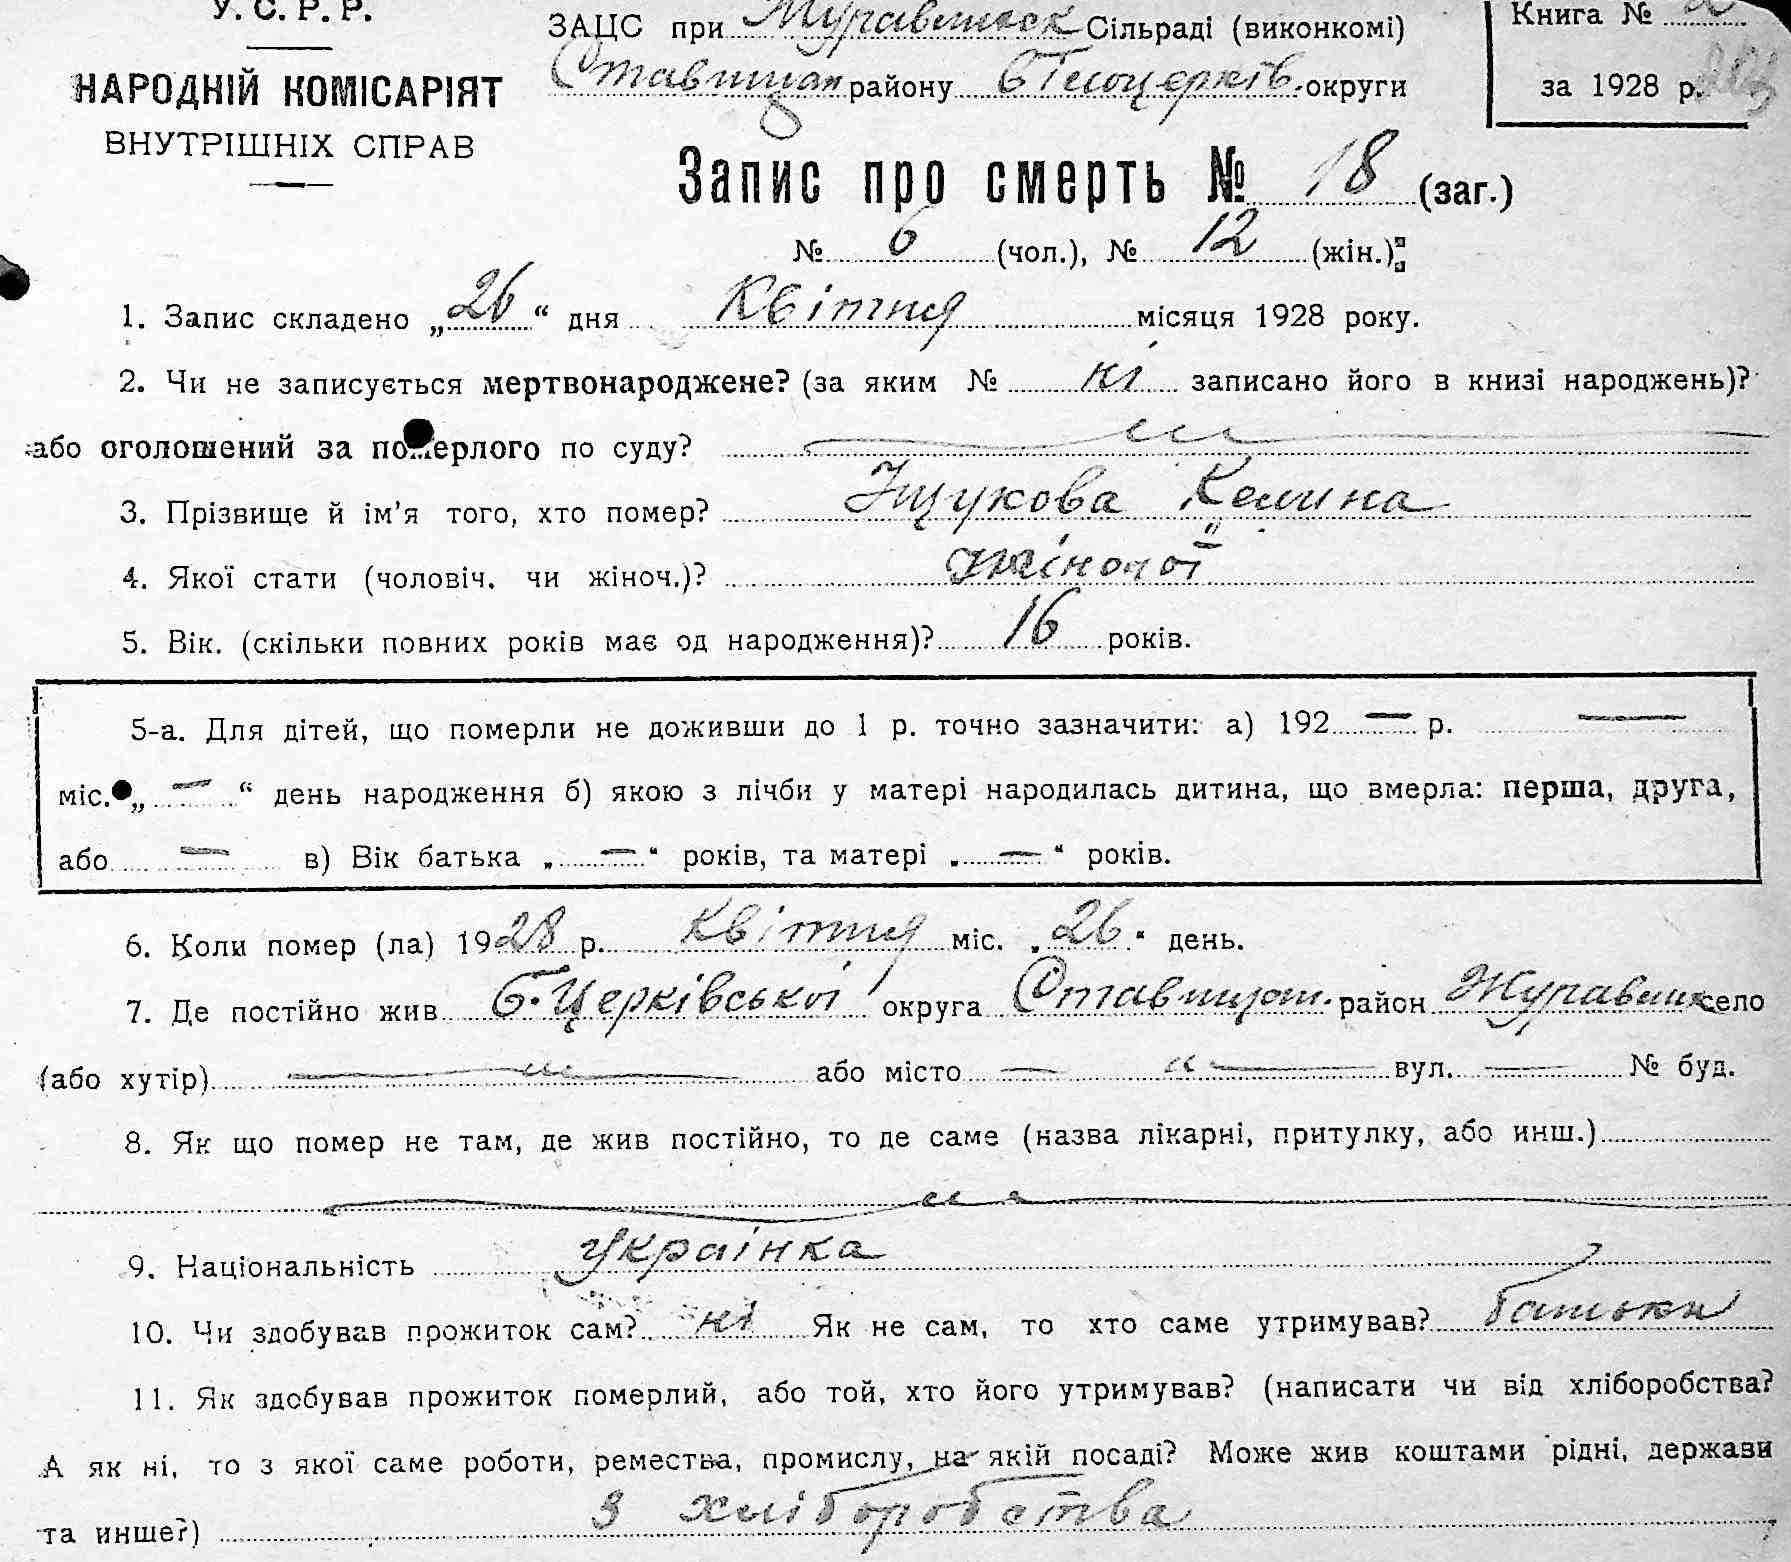 У. С. Р. Р.
НАРОДНІЙ КОМІСАРІЯТ
ВНУТРІШНІХ СПРАВ
ЗАЦС при Журавлиськ Сільраді (виконкомі)
Ставищан району Білоцерків. округи
Книга №
за 1928 р.
Запис про смерть № 18 (заг.)
№ 6 (чол.), № 12 (жін.)
1. Запис складено „26“ дня Квітня місяця 1928 року.
2. Чи не записується мертвонароджене? (за яким № ні записано його в книзі народжень)?
або оголошений за померлого по суду? —〃—
3. Прізвище й ім'я того, хто помер? Іщукова Келина
4. Якої стати (чоловіч. чи жіноч.)? жіночої
5. Вік. (скільки повних років має од народження)? 16 років.
5-а. Для дітей, що померли не доживши до 1 р. точно зазначити: а) 192 — р. —
міс. „ — “ день народження б) якою з лічби у матері народилась дитина, що вмерла: перша, друга,
або — в) Вік батька „ — “ років, та матері „ — “ років.
6. Коли помер (ла) 1928 р. Квітня міс. „26“ день.
7. Де постійно жив Б. Церківської округа Ставищан. район Журавлиськ село
(або хутір) —〃— або місто — 〃 — вул. — № буд.
8. Як що помер не там, де жив постійно, то де саме (назва лікарні, притулку, або инш.)
—〃—
9. Національність Українка
10. Чи здобував прожиток сам? ні Як не сам, то хто саме утримував? батьки
11. Як здобував прожиток померлий, або той, хто його утримував? (написати чи від хліборобства?
А як ні, то з якої саме роботи, ремества, промислу, на якій посаді? Може жив коштами рідні, держави
та инше?) З хліборобства